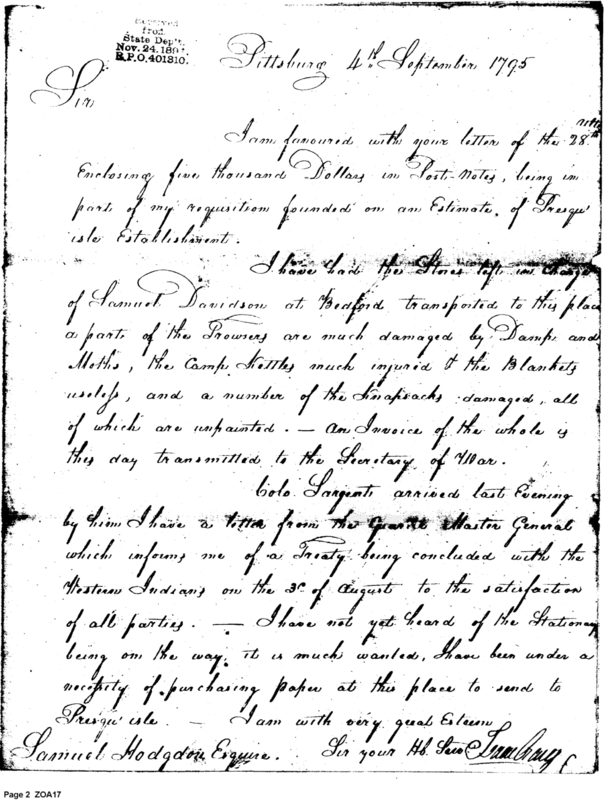 Received
from
State Dep't.
Nov. 24. 189
R.P.O. 401310.
Pittsburg 4th September 1795
Sir
I am favoured with your letter of the 28th ulto
Enclosing five thousand Dollars in Post Notes, being in
part of my requisition founded on an Estimate, of Presqu'
isle Establishment.
I have had the Stores left in charge
of Samuel Davidson at Bedford transported to this place
a part of the Trowsers are much damaged by Damp and
Moths, the Camp Kettles much injured & the Blankets
useless, and a number of the Knapsacks damaged, all
of which are unpainted. — An Invoice of the whole is
this day transmitted to the Secretary of War.
Colo. Sargent arrived last Evening
by him I have a letter from the Quarter Master General
which informs me of a Treaty being concluded with the
Western Indians on the 3d of August to the satisfaction
of all parties. — I have not yet heard of the Stationary
being on the way, it is much wanted, I have been under a
necessity of purchasing paper at this place to send to
Presqu' isle. — I am with very great Esteem
Samuel Hodgdon Esquire. Sir your Hb. Serv Isaac Craig
Page 2 ZOA17